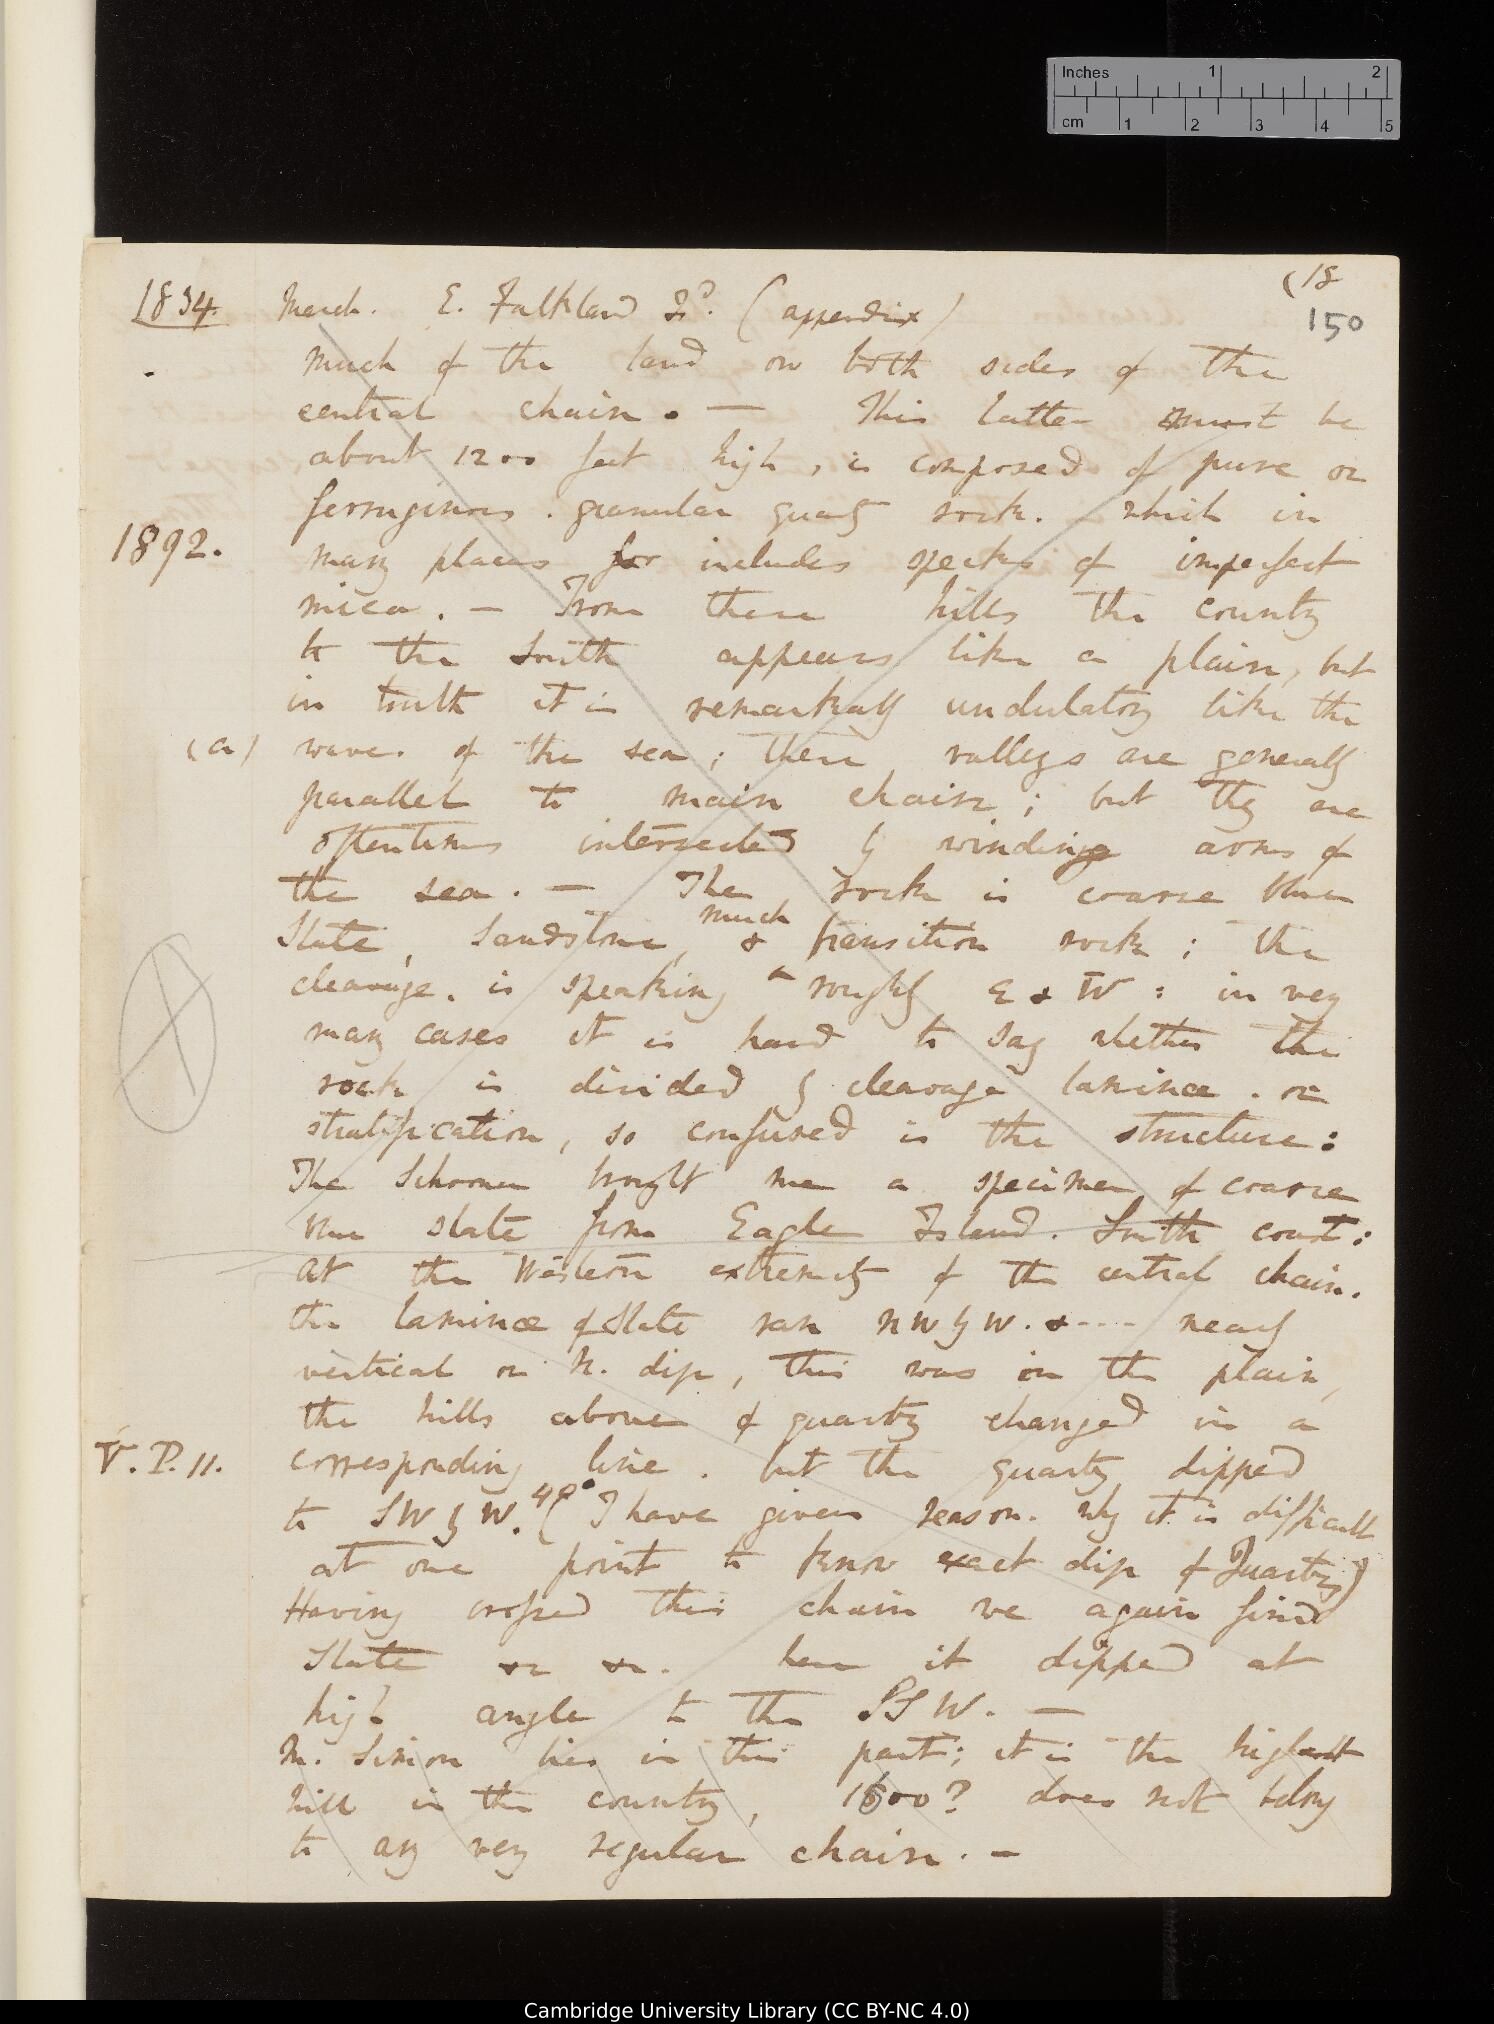 Inches 1 2
cm 1 2 3 4 5
(18
150
1834. March. E. Falkland Isd. (appendix)
much of the land on both sides of the
central chain. — This latter must be
about 1200 feet high, is composed of pure or
ferruginous. granular quartz rock. which in
1892. many places for includes specks of imperfect
mica. — From these hills the country
to the South appears like a plain, but
in truth it is remarkably undulatory like the
(a) waves of the sea; these valleys are generally
parallel to main chain; but they are
oftentimes intersected by winding arms of
the sea. — The rock is coarse blue
much
Slate, Sandstone, & transition rock; the
cleavage. is speaking roughly E & W: in very
many cases it is hard to say whether the
rock is divided by cleavage laminæ. or
stratification, so confused is the structure:
The Schooner brought me a specimen of coarse
blue slate from Eagle Island. South coast:
at the Western extremity of the central chain.
the laminæ of Slate ran NW by W. & ---- nearly
vertical or N. dip, this was in the plain,
the hills above of quartz changed in a
V. P. 11. corresponding line. but the quartz dipped
to SW by W. 40° (I have given reason. why it is difficult
at one point to know exact dip of Quartz)
Having crossed this chain we again find
Slate &c &c. here it dipped at
high angle to the SSW. —
M. Simon lies in this part; it is the highest
hill in the country, 1600? does not belong
to any very regular chain. —
Cambridge University Library (CC BY-NC 4.0)